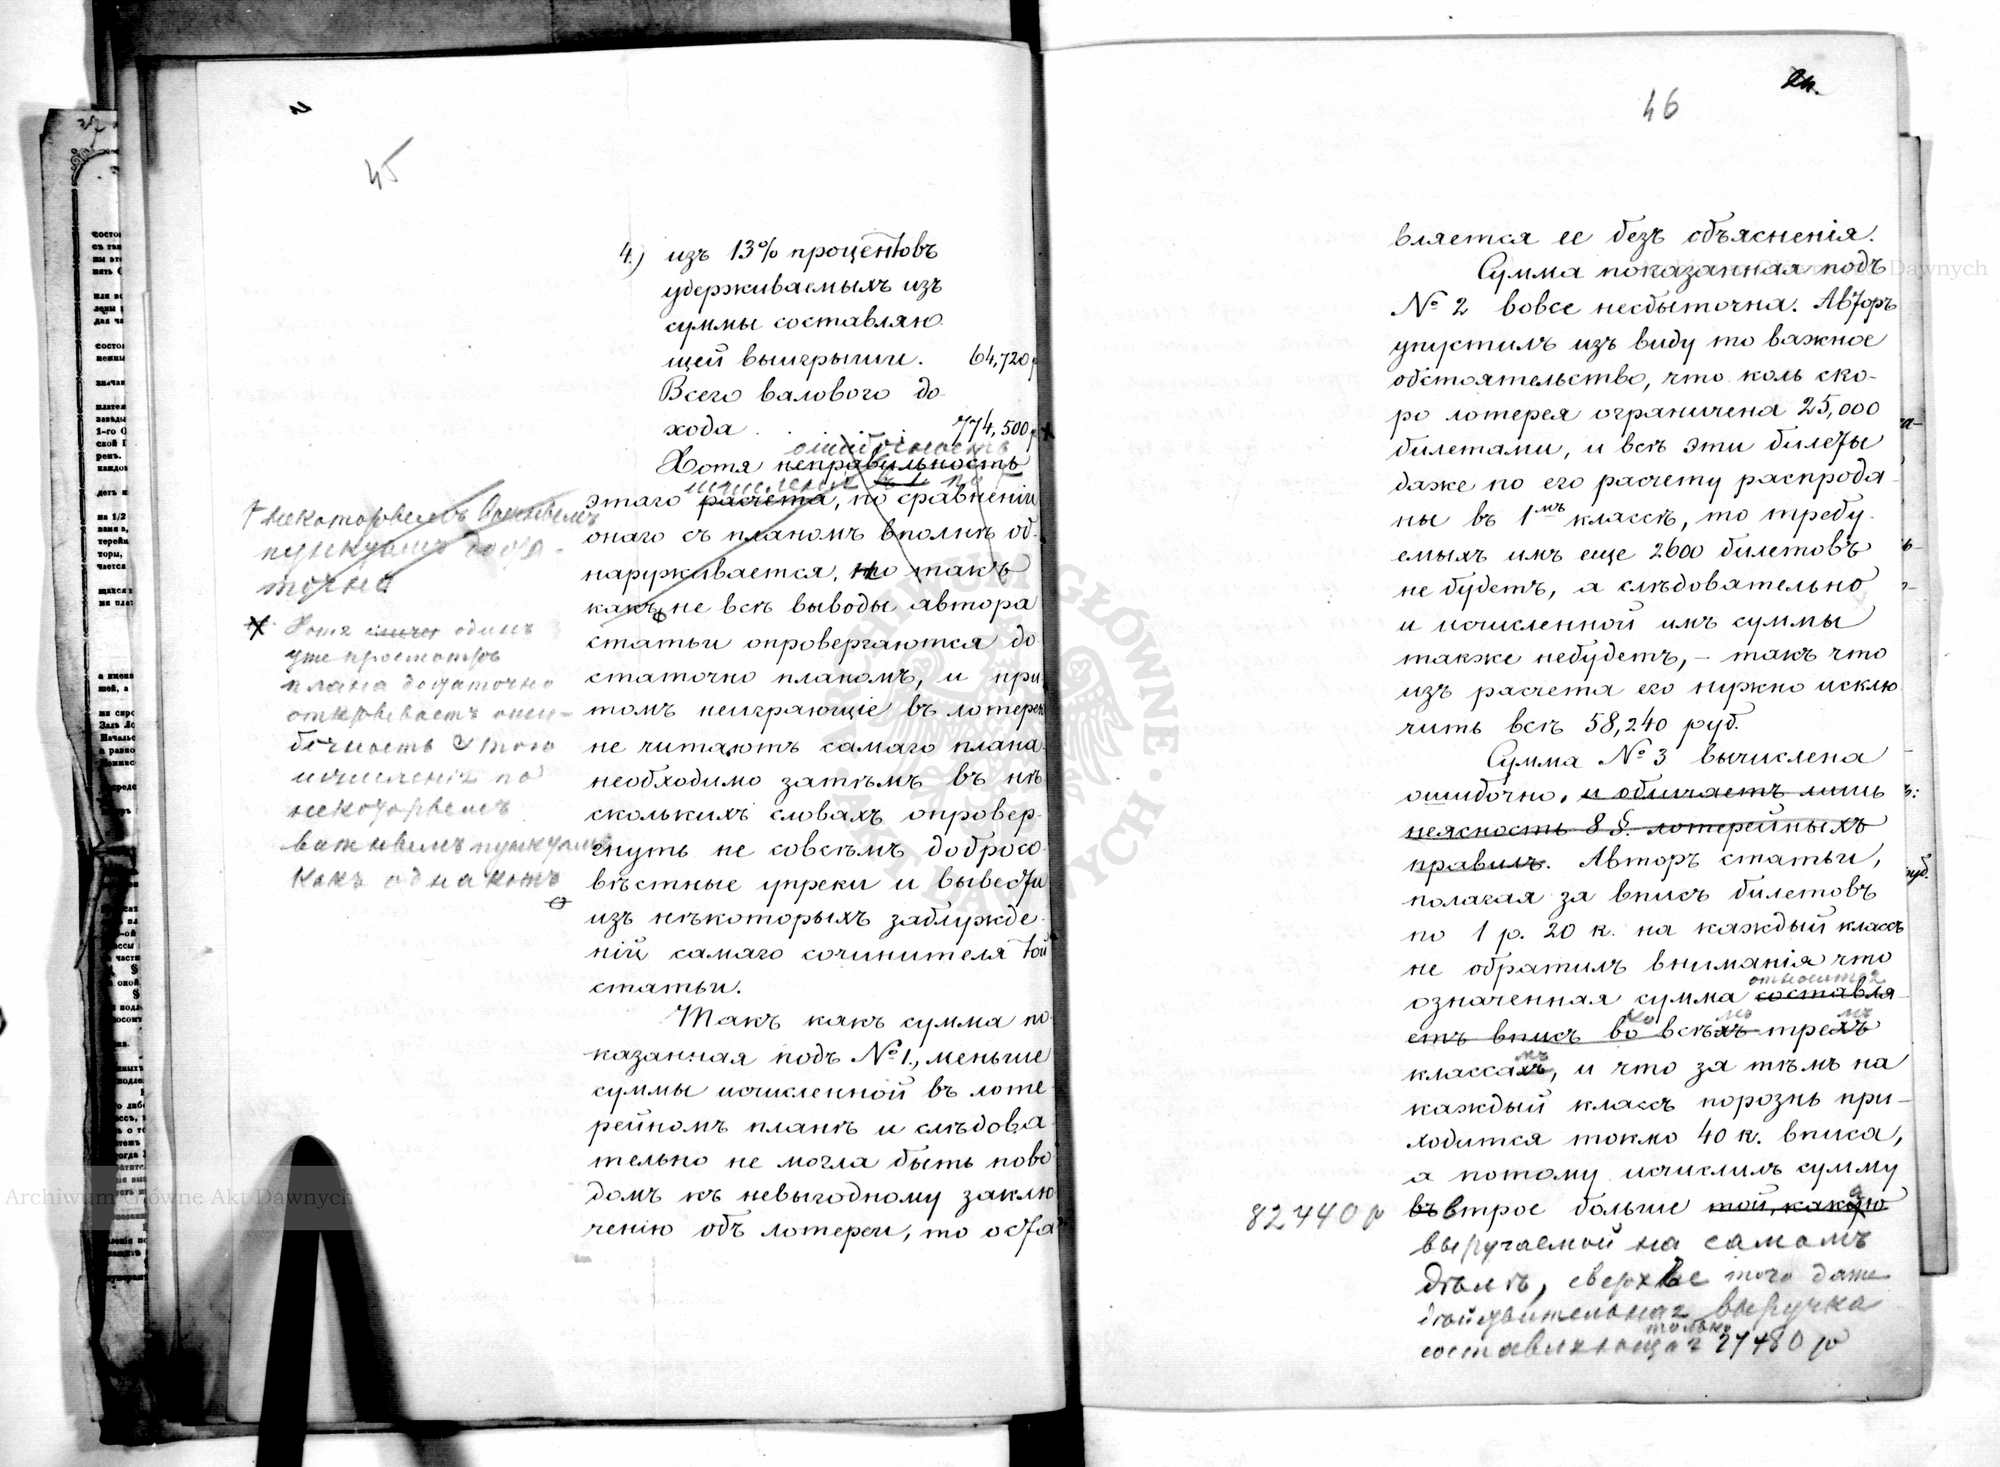 45
4.) изъ 13% процентовъ
удерживаемыхъ изъ
суммы составляю-
щей выигрыши. 64,720 р
Всего валового до-
хода . . 774,500 р
ошибочность
Хотя неправильность
исчисленія въ 1 по
этаго расчета, по сравненіи
онаго съ планомъ вполнѣ об-
наруживается, но такъ
какъ не всѣ выводы автора
статьи опровергаются до
статочно планомъ, и при
томъ неиграющіе въ лотерею
не читаютъ самаго плана
необходимо затѣмъ въ нѣ
сколькихъ словахъ опровер-
гнуть не совсѣмъ добросо-
вѣстные упреки и вывести
изъ нѣкоторыхъ заблужде-
ній самаго сочинителя той
статьи.
Такъ какъ сумма по
казанная подъ № 1., меньше
суммы исчисленной въ лоте
рейномъ планѣ и слѣдова
тельно не могла быть пово
домъ къ невыгодному заклю
ченію объ лотереи, то оста
некоторымъ важнымъ
пунктамъ доста-
точно
Хотя одинъ
уже просмотръ
плана достаточно
открываетъ оши-
бочность этого
исчисленія по
некоторымъ
важнымъ пунктамъ
какъ однакожъ
46
вляется ее безъ объясненія.
Сумма показанная подъ
№ 2 вовсе несбыточна. Авторъ
упустилъ изъ виду то важное
обстоятельство, что коль ско-
ро лотерея ограничена 25,000
билетами, и всѣ эти билеты
даже по его расчету распрода
ны въ 1мъ классѣ, то требу-
емыхъ имъ еще 2600 билетовъ
не будетъ, а слѣдовательно
и исчисленной имъ суммы
также небудетъ, – такъ что
изъ расчета его нужно исклю
чить всѣ 58,240 руб.
Сумма № 3 вычислена
ошибочно, и обличаетъ лишь
неясность 8 §. лотерейныхъ
правилъ. Авторъ статьи,
полагая за вписъ билетовъ
по 1 р. 20 к. на каждый классъ
не обратилъ вниманія что
относится
означенная сумма составля-
ко мъ мъ
етъ вписъ во всѣхъ трехъ
мъ
классахъ, и что за тѣмъ на
каждый классъ порознь при-
ходится токмо 40 к. вписа,
а потому исчислилъ сумму
82440 р въ втрое больше той, какую
выручаемой на самомъ
дѣлѣ, сверхъ того даже
дѣйствительная выручка
только
составляющая 27480 р
Archiwum Główne Akt Dawnych
ARCHIWUM GŁÓWNE AKT DAWNYCH